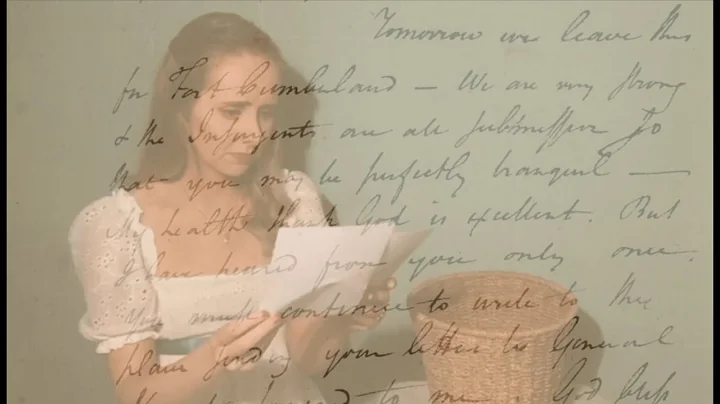 Tomorrow we leave this
for Fort Cumberland — We are very strong
& the Insurgents are all submissive so
that you may be perfectly tranquil —
My health thank God is excellent. But
I have heard from you only once.
You must continue to write to this
place sending your letter to General
forwarded to me. God bless